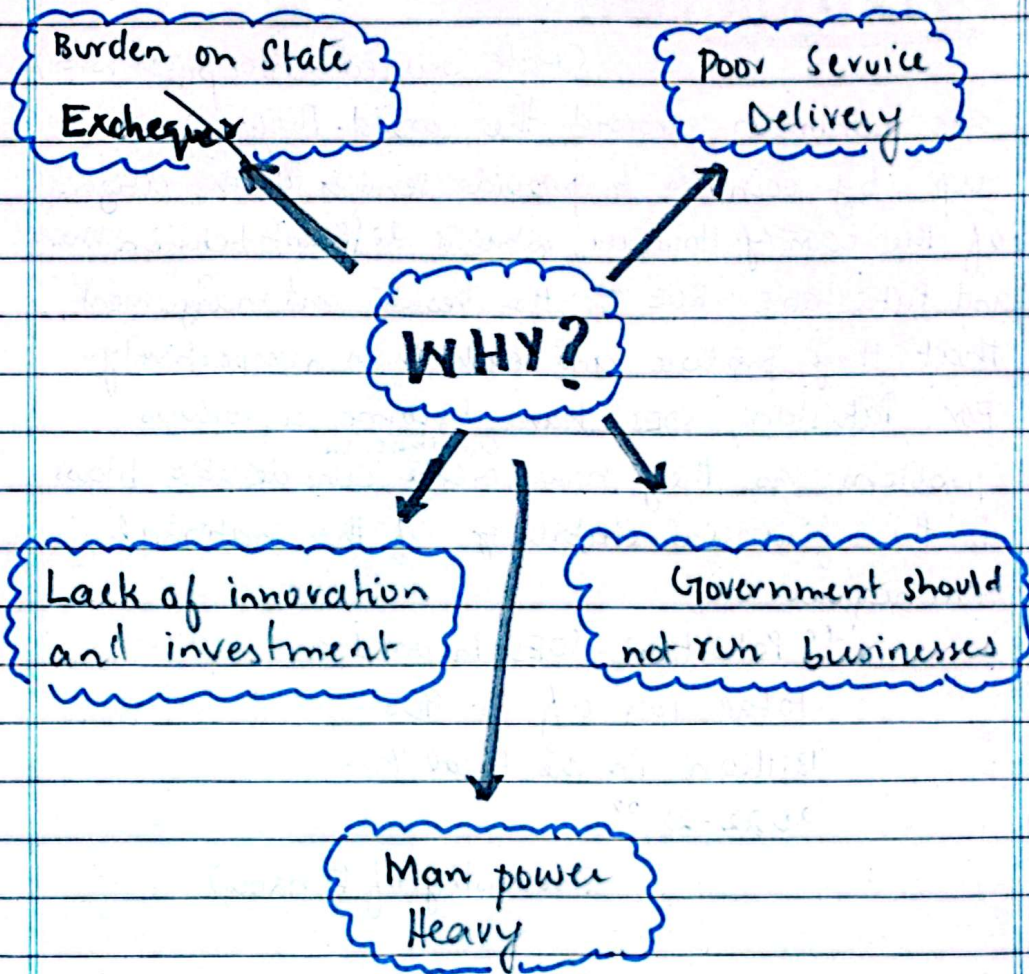 Burden on State
Exchequer
Poor Service
Delivery
WHY?
Lack of innovation
and investment
Government should
not run businesses
Man power
Heavy